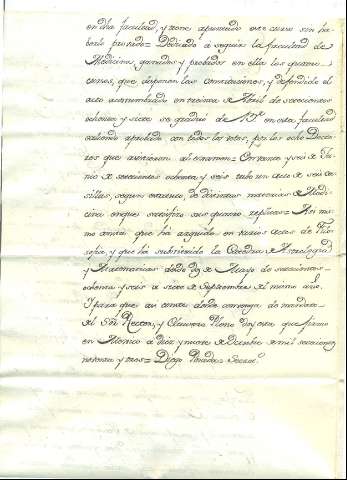 en dha facultad, y tiene aprovado este curso sin ha-
berlo provado = Dedicado á seguir la facultad de
Medicina, ganados y probados en ella los quatro
cursos, que disponen las constituciones, y defendido el
acto acostumbrado en treinta de Abril de setecientos
ochenta y siete se graduó de Br en esta facultad
saliendo aprobado con todos los votos, por los ocho Docto-
res que asistieron al examen = En veinte y seis de Ju-
nio de setecientos ochenta y seis tubo un acto de seis de
sillas, segun estatuto de diversas materias de Medi-
cina en que satisfizo sus quatro replicas = Asi mis-
mo consta que ha arguido en varios actos de Filo-
sofia, y que há substituido la Catedra de Astrologia
y Matematicas desde de Mayo de setecientos
ochenta y seis a siete de Septiembre del mismo año.
Y para que asi conste donde convenga de mandato
del Sôr Rector, y Claustro Pleno doy esta que firmo
en Mexico a diez y nueve de Octubre de mil setecientos
noventa y tres = Diego Posada = Secrio